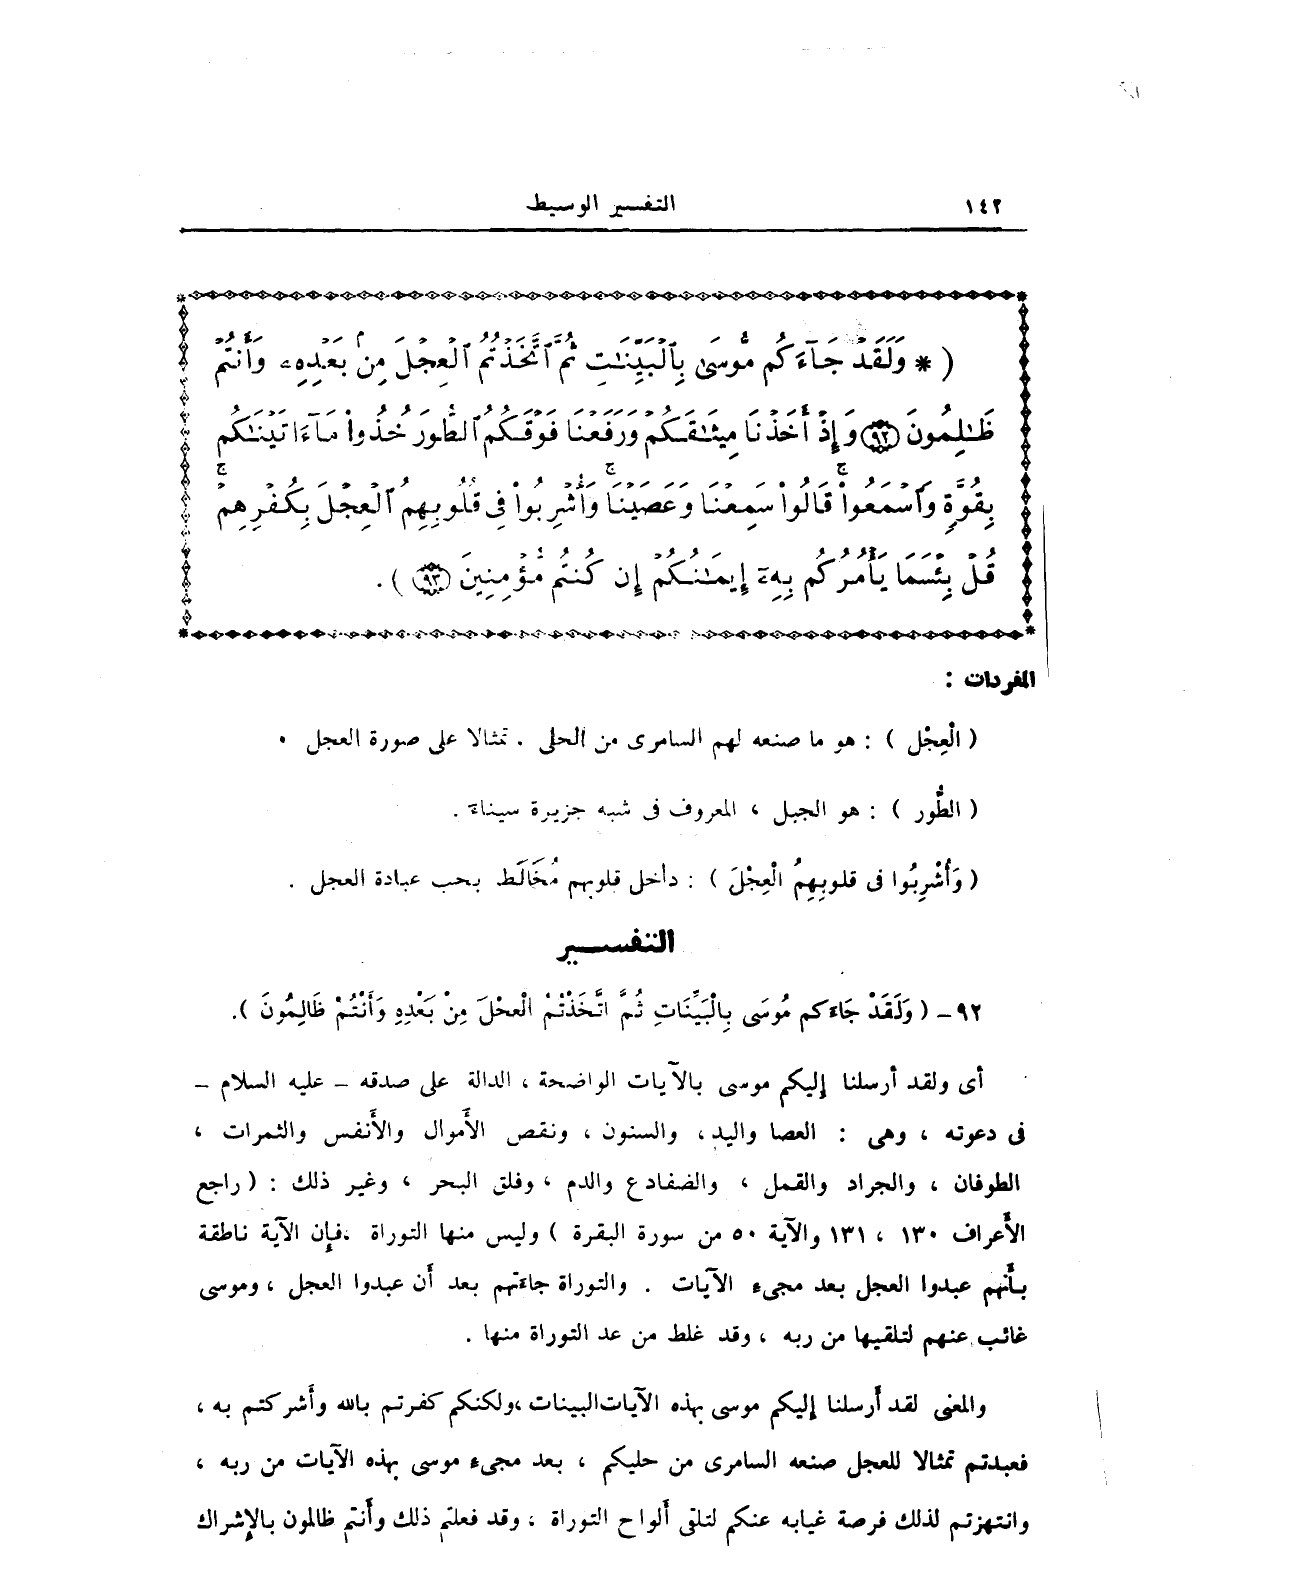 ١٤٢
التفسير الوسيط
( * وَلَقَدْ جَآءَكُم مُّوسَىٰ بِٱلْبَيِّنَٰتِ ثُمَّ ٱتَّخَذْتُمُ ٱلْعِجْلَ مِنۢ بَعْدِهِۦ وَأَنتُمْ
ظَٰلِمُونَ ٩٢ وَإِذْ أَخَذْنَا مِيثَٰقَكُمْ وَرَفَعْنَا فَوْقَكُمُ ٱلطُّورَ خُذُوا۟ مَآ ءَاتَيْنَٰكُم
بِقُوَّةٍ وَٱسْمَعُوا۟ ۖ قَالُوا۟ سَمِعْنَا وَعَصَيْنَا ۚ وَأُشْرِبُوا۟ فِى قُلُوبِهِمُ ٱلْعِجْلَ بِكُفْرِهِمْ ۚ
قُلْ بِئْسَمَا يَأْمُرُكُم بِهِۦٓ إِيمَٰنُكُمْ إِن كُنتُم مُّؤْمِنِينَ ٩٣ ) .
المفردات :
( الْعِجْل ) : هو ما صنعه لهم السامرى من الحلى . تمثالا على صورة العجل .
( الطُّور ) : هو الجبل ، المعروف فى شبه جزيرة سيناءَ .
( وَأُشْرِبُوا فى قلوبِهِمُ الْعِجْلَ ) : داخل قلوبهم مُخَالَط بحب عبادة العجل .
التفســـير
٩٢ – ( وَلَقَدْ جَاءَكم مُوسَى بِالْبَيِّنَاتِ ثُمَّ اتَّخَذْتُمْ الْعجْلَ مِنْ بَعْدِهِ وَأَنْتُمْ ظَالِمُونَ ).
أى ولقد أرسلنا إليكم موسى بالآيات الواضحة ، الدالة على صدقه – عليه السلام –
فى دعوته ، وهى : العصا واليد ، والسنون ، ونقص الأَموال والأَنفس والثمرات ،
الطوفان ، والجراد والقمل ، والضفادع والدم ، وفلق البحر ، وغير ذلك : ( راجع
الأَعراف ١٣٠ ، ١٣١ والآية ٥٠ من سورة البقرة ) وليس منها التوراة ، فإن الآية ناطقة
بأَنهم عبدوا العجل بعد مجىء الآيات . والتوراة جاءتهم بعد أن عبدوا العجل ، وموسى
غائب عنهم لتلقيها من ربه ، وقد غلط من عد التوراة منها .
والمعنى لقد أرسلنا إليكم موسى بهذه الآيات البينات ، ولكنكم كفرتم بالله وأشركتم به ،
فعبدتم تمثالا للعجل صنعه السامرى من حليكم ، بعد مجىء موسى بهذه الآيات من ربه ،
وانتهزتم لذلك فرصة غيابه عنكم لتلقى ألواح التوراة ، وقد فعلتم ذلك وأنتم ظالمون بالإشراك